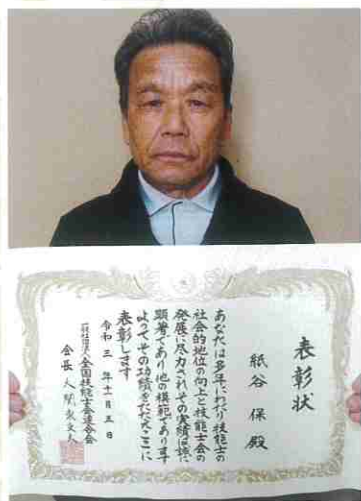 表彰状
紙谷 保 殿
あなたは多年にわたり技能士の
社会的地位の向上と技能士会の
発展に尽力されその実績は誠に
顕著であり他の模範であります
よってその功績をたたえここに
表彰します
令和三年十一月五日
一般社団法人全国技能士会連合会
会長 大関東支夫